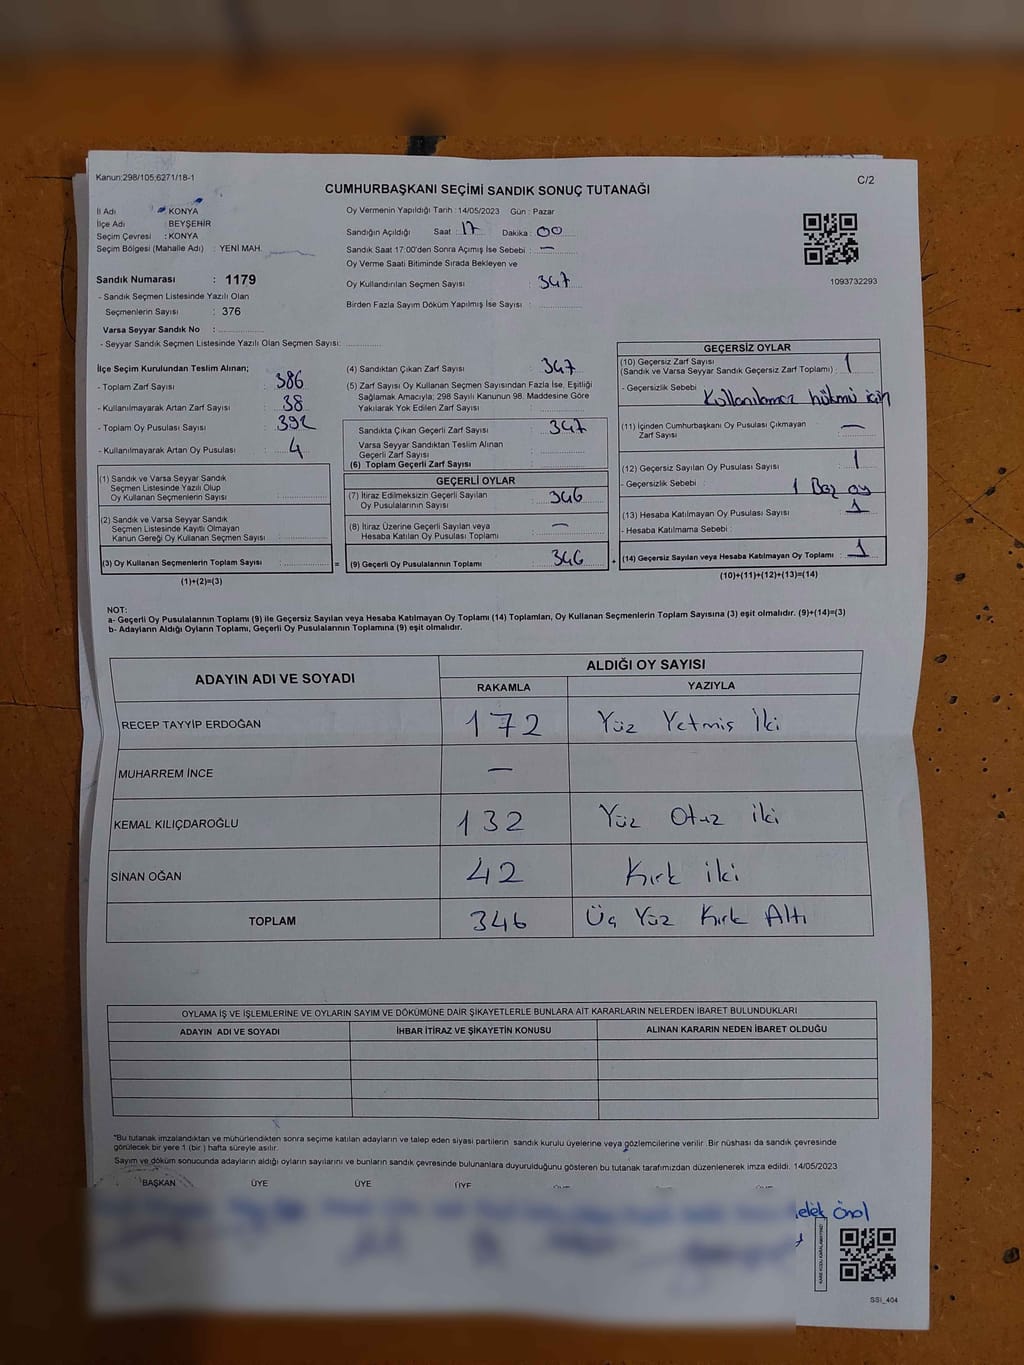 Kanun:298/105;6271/18-1
C/2
CUMHURBAŞKANI SEÇİMİ SANDIK SONUÇ TUTANAĞI
İl Adı : KONYA
İlçe Adı : BEYŞEHİR
Seçim Çevresi : KONYA
Seçim Bölgesi (Mahalle Adı) : YENİ MAH.
Sandık Numarası : 1179
- Sandık Seçmen Listesinde Yazılı Olan
Seçmenlerin Sayısı : 376
Varsa Seyyar Sandık No :
- Seyyar Sandık Seçmen Listesinde Yazılı Olan Seçmen Sayısı:
Oy Vermenin Yapıldığı Tarih : 14/05/2023 Gün : Pazar
Sandığın Açıldığı Saat : 17 Dakika : 00
Sandık Saat 17:00'den Sonra Açımış İse Sebebi : —
Oy Verme Saati Bitiminde Sırada Bekleyen ve
Oy Kullandırılan Seçmen Sayısı : 347
Birden Fazla Sayım Döküm Yapılmış İse Sayısı :
1093732293
İlçe Seçim Kurulundan Teslim Alınan;
- Toplam Zarf Sayısı : 386
- Kullanılmayarak Artan Zarf Sayısı : 38
- Toplam Oy Pusulası Sayısı : 392
- Kullanılmayarak Artan Oy Pusulası : 4
(1) Sandık ve Varsa Seyyar Sandık
Seçmen Listesinde Yazılı Olup
Oy Kullanan Seçmenlerin Sayısı :
(2) Sandık ve Varsa Seyyar Sandık
Seçmen Listesinde Kayıtlı Olmayan
Kanun Gereği Oy Kullanan Seçmen Sayısı :
(3) Oy Kullanan Seçmenlerin Toplam Sayısı : =
(1)+(2)=(3)
(4) Sandıktan Çıkan Zarf Sayısı : 347
(5) Zarf Sayısı Oy Kullanan Seçmen Sayısından Fazla İse, Eşitliği
Sağlamak Amacıyla; 298 Sayılı Kanunun 98. Maddesine Göre
Yakılarak Yok Edilen Zarf Sayısı :
Sandıkta Çıkan Geçerli Zarf Sayısı : 347
Varsa Seyyar Sandıktan Teslim Alınan
Geçerli Zarf Sayısı :
(6) Toplam Geçerli Zarf Sayısı :
GEÇERLİ OYLAR
(7) İtiraz Edilmeksizin Geçerli Sayılan
Oy Pusulalarının Sayısı : 346
(8) İtiraz Üzerine Geçerli Sayılan veya
Hesaba Katılan Oy Pusulası Toplamı : —
(9) Geçerli Oy Pusulalarının Toplamı : 346 +
GEÇERSİZ OYLAR
(10) Geçersiz Zarf Sayısı
(Sandık ve Varsa Seyyar Sandık Geçersiz Zarf Toplamı) : 1
- Geçersizlik Sebebi : Kullanılamaz hükmü için
(11) İçinden Cumhurbaşkanı Oy Pusulası Çıkmayan
Zarf Sayısı : —
(12) Geçersiz Sayılan Oy Pusulası Sayısı : 1
- Geçersizlik Sebebi : 1 Boş oy
(13) Hesaba Katılmayan Oy Pusulası Sayısı : 1
- Hesaba Katılmama Sebebi :
(14) Geçersiz Sayılan veya Hesaba Katılmayan Oy Toplamı : 1
(10)+(11)+(12)+(13)=(14)
NOT:
a- Geçerli Oy Pusulalarının Toplamı (9) ile Geçersiz Sayılan veya Hesaba Katılmayan Oy Toplamı (14) Toplamları, Oy Kullanan Seçmenlerin Toplam Sayısına (3) eşit olmalıdır. (9)+(14)=(3)
b- Adayların Aldığı Oyların Toplamı, Geçerli Oy Pusulalarının Toplamına (9) eşit olmalıdır.
ADAYIN ADI VE SOYADI
ALDIĞI OY SAYISI
RAKAMLA YAZIYLA
RECEP TAYYİP ERDOĞAN 172 Yüz Yetmiş İki
MUHARREM İNCE —
KEMAL KILIÇDAROĞLU 132 Yüz Otuz iki
SİNAN OĞAN 42 Kırk iki
TOPLAM 346 Üç Yüz Kırk Altı
OYLAMA İŞ VE İŞLEMLERİNE VE OYLARIN SAYIM VE DÖKÜMÜNE DAİR ŞİKAYETLERLE BUNLARA AİT KARARLARIN NELERDEN İBARET BULUNDUKLARI
ADAYIN ADI VE SOYADI İHBAR İTİRAZ VE ŞİKAYETİN KONUSU ALINAN KARARIN NEDEN İBARET OLDUĞU
*Bu tutanak imzalandıktan ve mühürlendikten sonra seçime katılan adayların ve talep eden siyasi partilerin sandık kurulu üyelerine veya gözlemcilerine verilir. Bir nüshası da sandık çevresinde
görülecek bir yere 1 (bir ) hafta süreyle asılır.
Sayım ve döküm sonucunda adayların aldığı oyların sayılarını ve bunların sandık çevresinde bulunanlara duyurulduğunu gösteren bu tutanak tarafımızdan düzenlenerek imza edildi. 14/05/2023
BAŞKAN ÜYE ÜYE ÜYE
elek Önal
SSI_404